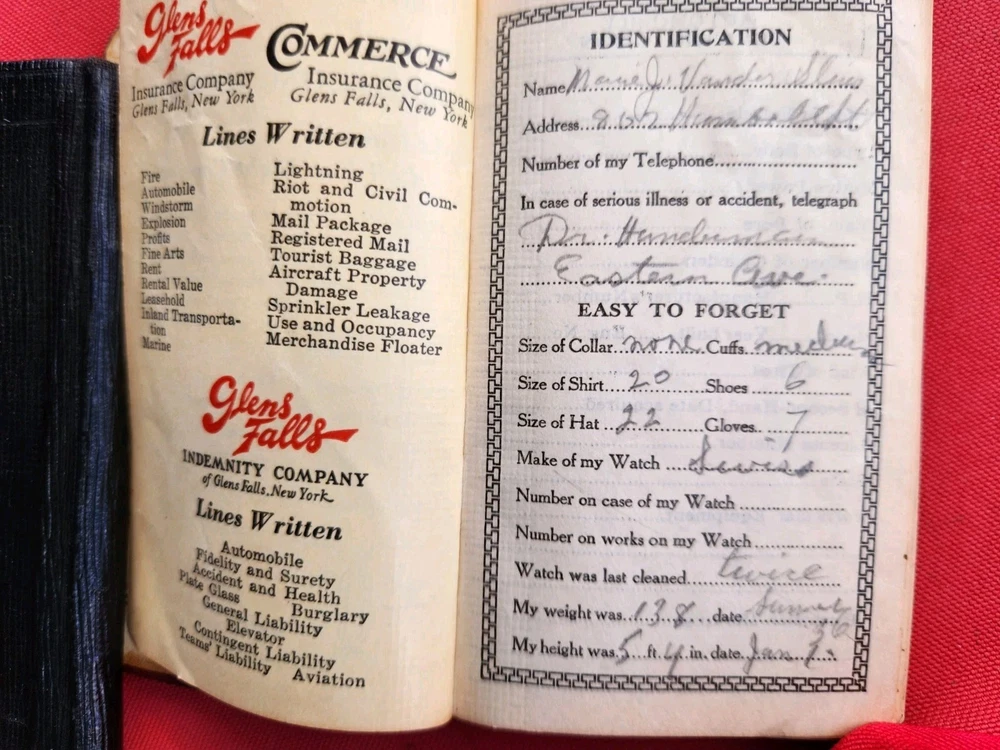 Glens
Falls
Insurance Company
Glens Falls, New York
COMMERCE
Insurance Company
Glens Falls, New York
Lines Written
Fire
Automobile
Windstorm
Explosion
Profits
Fine Arts
Rent
Rental Value
Leasehold
Inland Transporta-
tion
Marine
Lightning
Riot and Civil Com-
motion
Mail Package
Registered Mail
Tourist Baggage
Aircraft Property
Damage
Sprinkler Leakage
Use and Occupancy
Merchandise Floater
Glens
Falls
INDEMNITY COMPANY
of Glens Falls, New York
Lines Written
Automobile
Fidelity and Surety
Accident and Health
Plate Glass Burglary
General Liability
Elevator
Contingent Liability
Teams' Liability Aviation
IDENTIFICATION
Name Marie J. Vander
Address
Number of my Telephone
In case of serious illness or accident, telegraph
Dr.
Eastern Ave.
EASY TO FORGET
Size of Collar none Cuffs medium
Size of Shirt 20 Shoes 6
Size of Hat 22 Gloves 7
Make of my Watch
Number on case of my Watch
Number on works on my Watch
Watch was last cleaned twice
My weight was 138 date
36
My height was 5 ft. 4 in. date Jan